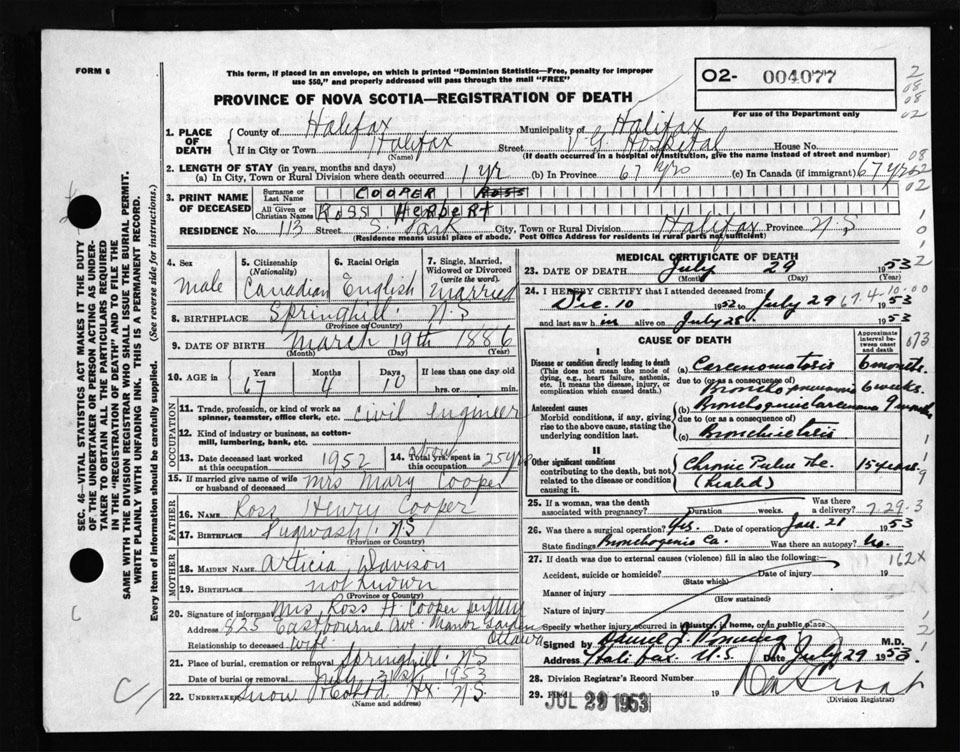 FORM 6
This form, if placed in an envelope, on which is printed "Dominion Statistics—Free, penalty for improper
use $50," and properly addressed will pass through the mail "FREE"
02- 004077
For use of the Department only
PROVINCE OF NOVA SCOTIA—REGISTRATION OF DEATH
1. PLACE OF DEATH
County of Halifax Municipality of Halifax
If in City or Town Halifax Street V.G. Hospital House No.
(Name) (If death occurred in a hospital or institution, give the name instead of street and number)
2. LENGTH OF STAY (in years, months and days)
(a) In City, Town or Rural Division where death occurred 1 yr (b) In Province 67 yrs (c) In Canada (if immigrant) 67 yrs
3. PRINT NAME OF DECEASED
Surname or Last Name COOPER
All Given or Christian Names ROSS HERBERT
RESIDENCE No. 113 Street S. Park City, Town or Rural Division Halifax Province N.S
(Residence means usual place of abode. Post Office Address for residents in rural parts not sufficient)
4. Sex
Male
5. Citizenship
(Nationality)
Canadian
6. Racial Origin
English
7. Single, Married, Widowed or Divorced
(write the word).
Married
8. BIRTHPLACE Springhill. N.S
(Province or Country)
9. DATE OF BIRTH March 19th 1886
(Month) (Day) (Year)
10. AGE in Years Months Days If less than one day old
67 4 10 hrs. or min.
OCCUPATION
11. Trade, profession, or kind of work as
spinner, teamster, office clerk, etc. Civil engineer
12. Kind of industry or business, as cotton-
mill, lumbering, bank, etc.
13. Date deceased last worked
at this occupation 1952
14. Total yrs spent in
this occupation 25 yrs
15. If married give name of wife
or husband of deceased Mrs Mary Cooper
FATHER
16. Name Ross Henry Cooper
17. Birthplace Pugwash. N.S
(Province or Country)
MOTHER
18. Maiden Name Articia Davison
19. Birthplace not known
(Province or Country)
20. Signature of informant Mrs Ross H. Cooper
Address 825 Eastbourne Ave. Manor
Ottawa
Relationship to deceased wife
21. Place of burial, cremation or removal Springhill. N.S
Date of burial or removal July 31st 1953
22. Undertaker Snow Hx. N.S
(Name and address)
MEDICAL CERTIFICATE OF DEATH
23. DATE OF DEATH July 29 1953
(Month) (Day) (Year)
24. I HEREBY CERTIFY that I attended deceased from:
Dec. 10 1952 to July 29 1953
67.4-10.00
and last saw him alive on July 28 1953
CAUSE OF DEATH
Approximate interval between onset and death
I
Disease or condition directly leading to death
(This does not mean the mode of
dying, e.g., heart failure, asthenia,
etc. It means the disease, injury, or
complication which caused death.)
(a) Carcinomatosis 6 months.
due to (or as a consequence of)
Bronchopneumonia 6 weeks.
Antecedent causes
Morbid conditions, if any, giving
rise to the above cause, stating the
underlying condition last.
(b) Bronchogenic carcinoma 9 months
due to (or as a consequence of)
(c) Bronchiectasis
II
Other significant conditions
contributing to the death, but not
related to the disease or condition
causing it.
Chronic Pulm. Tbc. 15 years.
(healed)
25. If a woman, was the death
associated with pregnancy? Duration weeks. Was there a delivery?
7.29.3
26. Was there a surgical operation? Yes. Date of operation Jan. 21 1953
State findings Bronchogenic Ca. Was there an autopsy? No.
27. If death was due to external causes (violence) fill in also the following:—
162x
Accident, suicide or homicide? Date of injury 19
(State which)
Manner of injury
(How sustained)
Nature of injury
Specify whether injury occurred in industry, in home, or in public place
Signed by M.D.
Address Halifax. N.S. Date July 29 1953
28. Division Registrar's Record Number
29. Filed JUL 29 1953 19
(Division Registrar)
SEC. 46—VITAL STATISTICS ACT MAKES IT THE DUTY
OF THE UNDERTAKER OR PERSON ACTING AS UNDER-
TAKER TO OBTAIN ALL THE PARTICULARS REQUIRED
IN THE "REGISTRATION OF DEATH" AND TO FILE THE
SAME WITH THE DIVISION REGISTRAR WHO SHALL ISSUE THE BURIAL PERMIT.
WRITE PLAINLY WITH UNFADING INK. THIS IS A PERMANENT RECORD.
Every item of information should be carefully supplied. (See reverse side for instructions.)